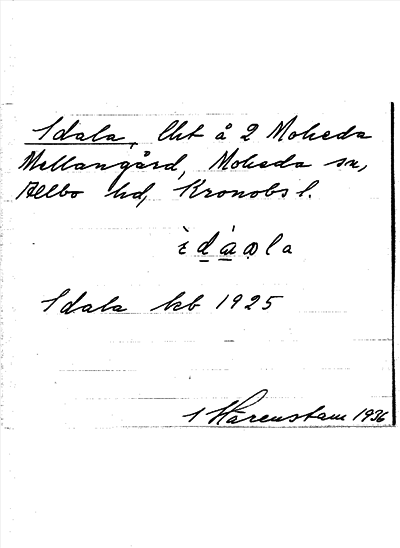 Idala, lht å 2 Moheda
Mellangård, Moheda sn,
Allbo hd, Kronobs l.
Idala kb 1925
Härenstam 1936